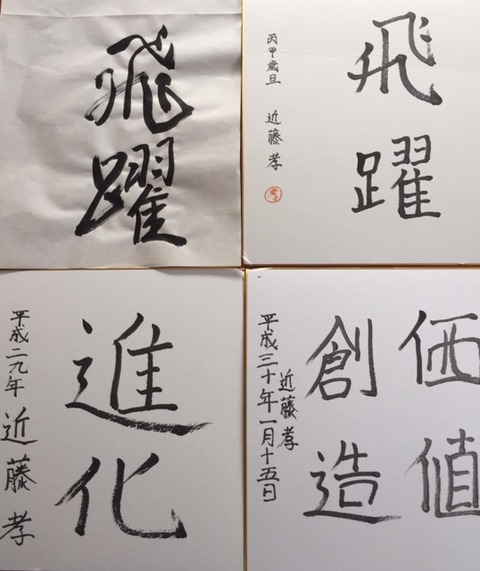 飛躍
飛躍
丙甲歳旦 近藤孝
孝
進化
平成二九年 近藤孝
価値
創造
近藤孝
平成三十年一月十五日